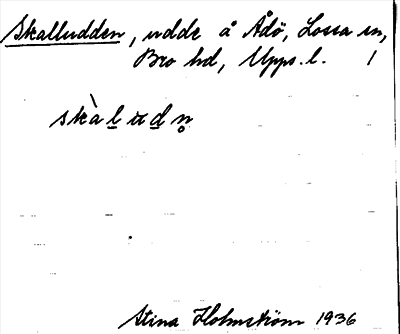 Skalludden, udde å Ådö, Lossa sn,
Bro hd, Upps. l. 1
skàl u d n̥
Stina Holmström 1936